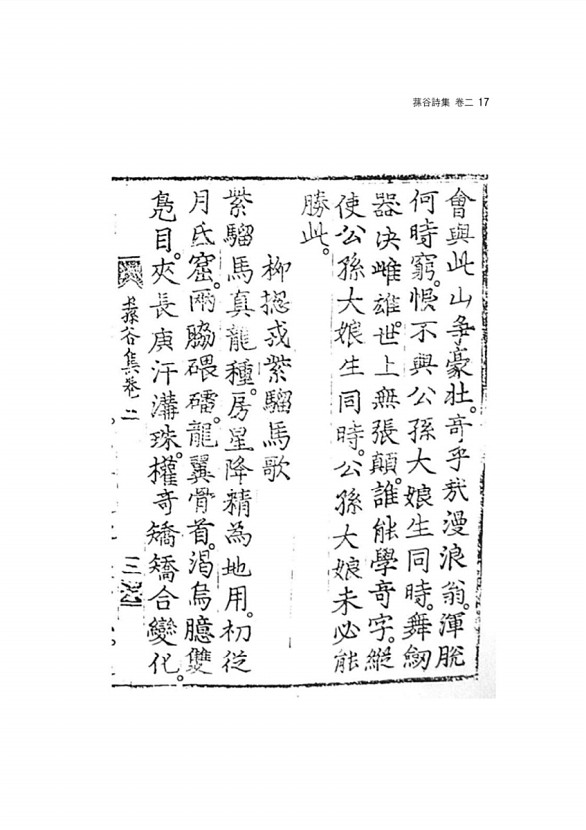 蓀谷詩集 卷二 17
會與此山爭豪壯。奇乎㢤漫浪翁。渾脫
何時窮。恨不與公孫大娘生同時。舞釰
器决雌雄。世上無張顛。誰能學奇字。縱
使公孫大娘生同時。公孫大娘未必能
勝此。
柳摠戎紫騮馬歌
紫騮馬真龍種。房星降精為地用。初從
月氐窟。兩脇碨礌。龍翼骨首。渴烏臆雙
鳧目。夾長庚汗溝珠。權奇矯矯合變化。
蓀谷集卷二 三